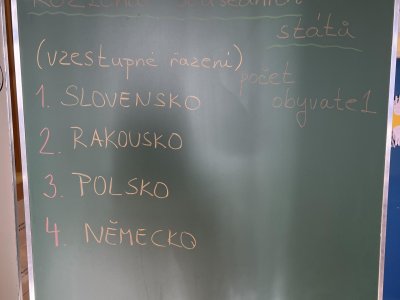 sousedních
států
(vzestupné řazení)
počet
obyvatel
1. SLOVENSKO
2. RAKOUSKO
3. POLSKO
4. NĚMECKO